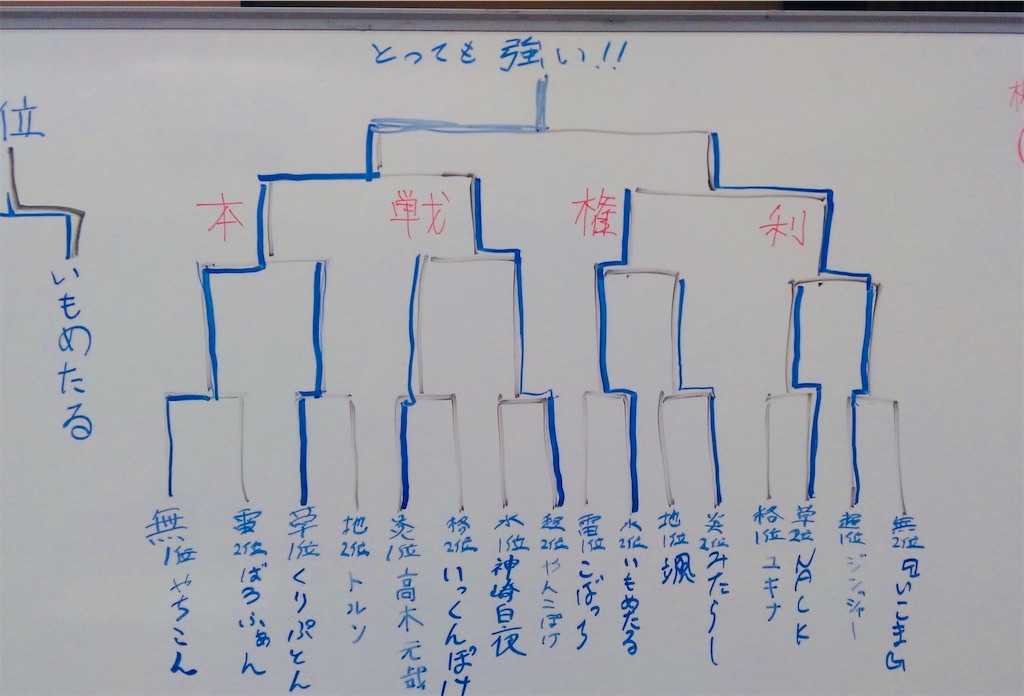 とっても強い!!
位
いもめたる
本戦権利
無1位 やちこん
雷2位 ばろふぁん
草1位 くりぷとん
地2位 トルン
炎1位 高木元哉
格2位 いっくんぽけ
水1位 神崎白夜
超2位 やんこぽけ
雷1位 こばっち
水2位 いもめたる
地1位 颯
炎2位 みたらし
格1位 ユキナ
草2位 NACK
超1位 ジンジャー
無2位